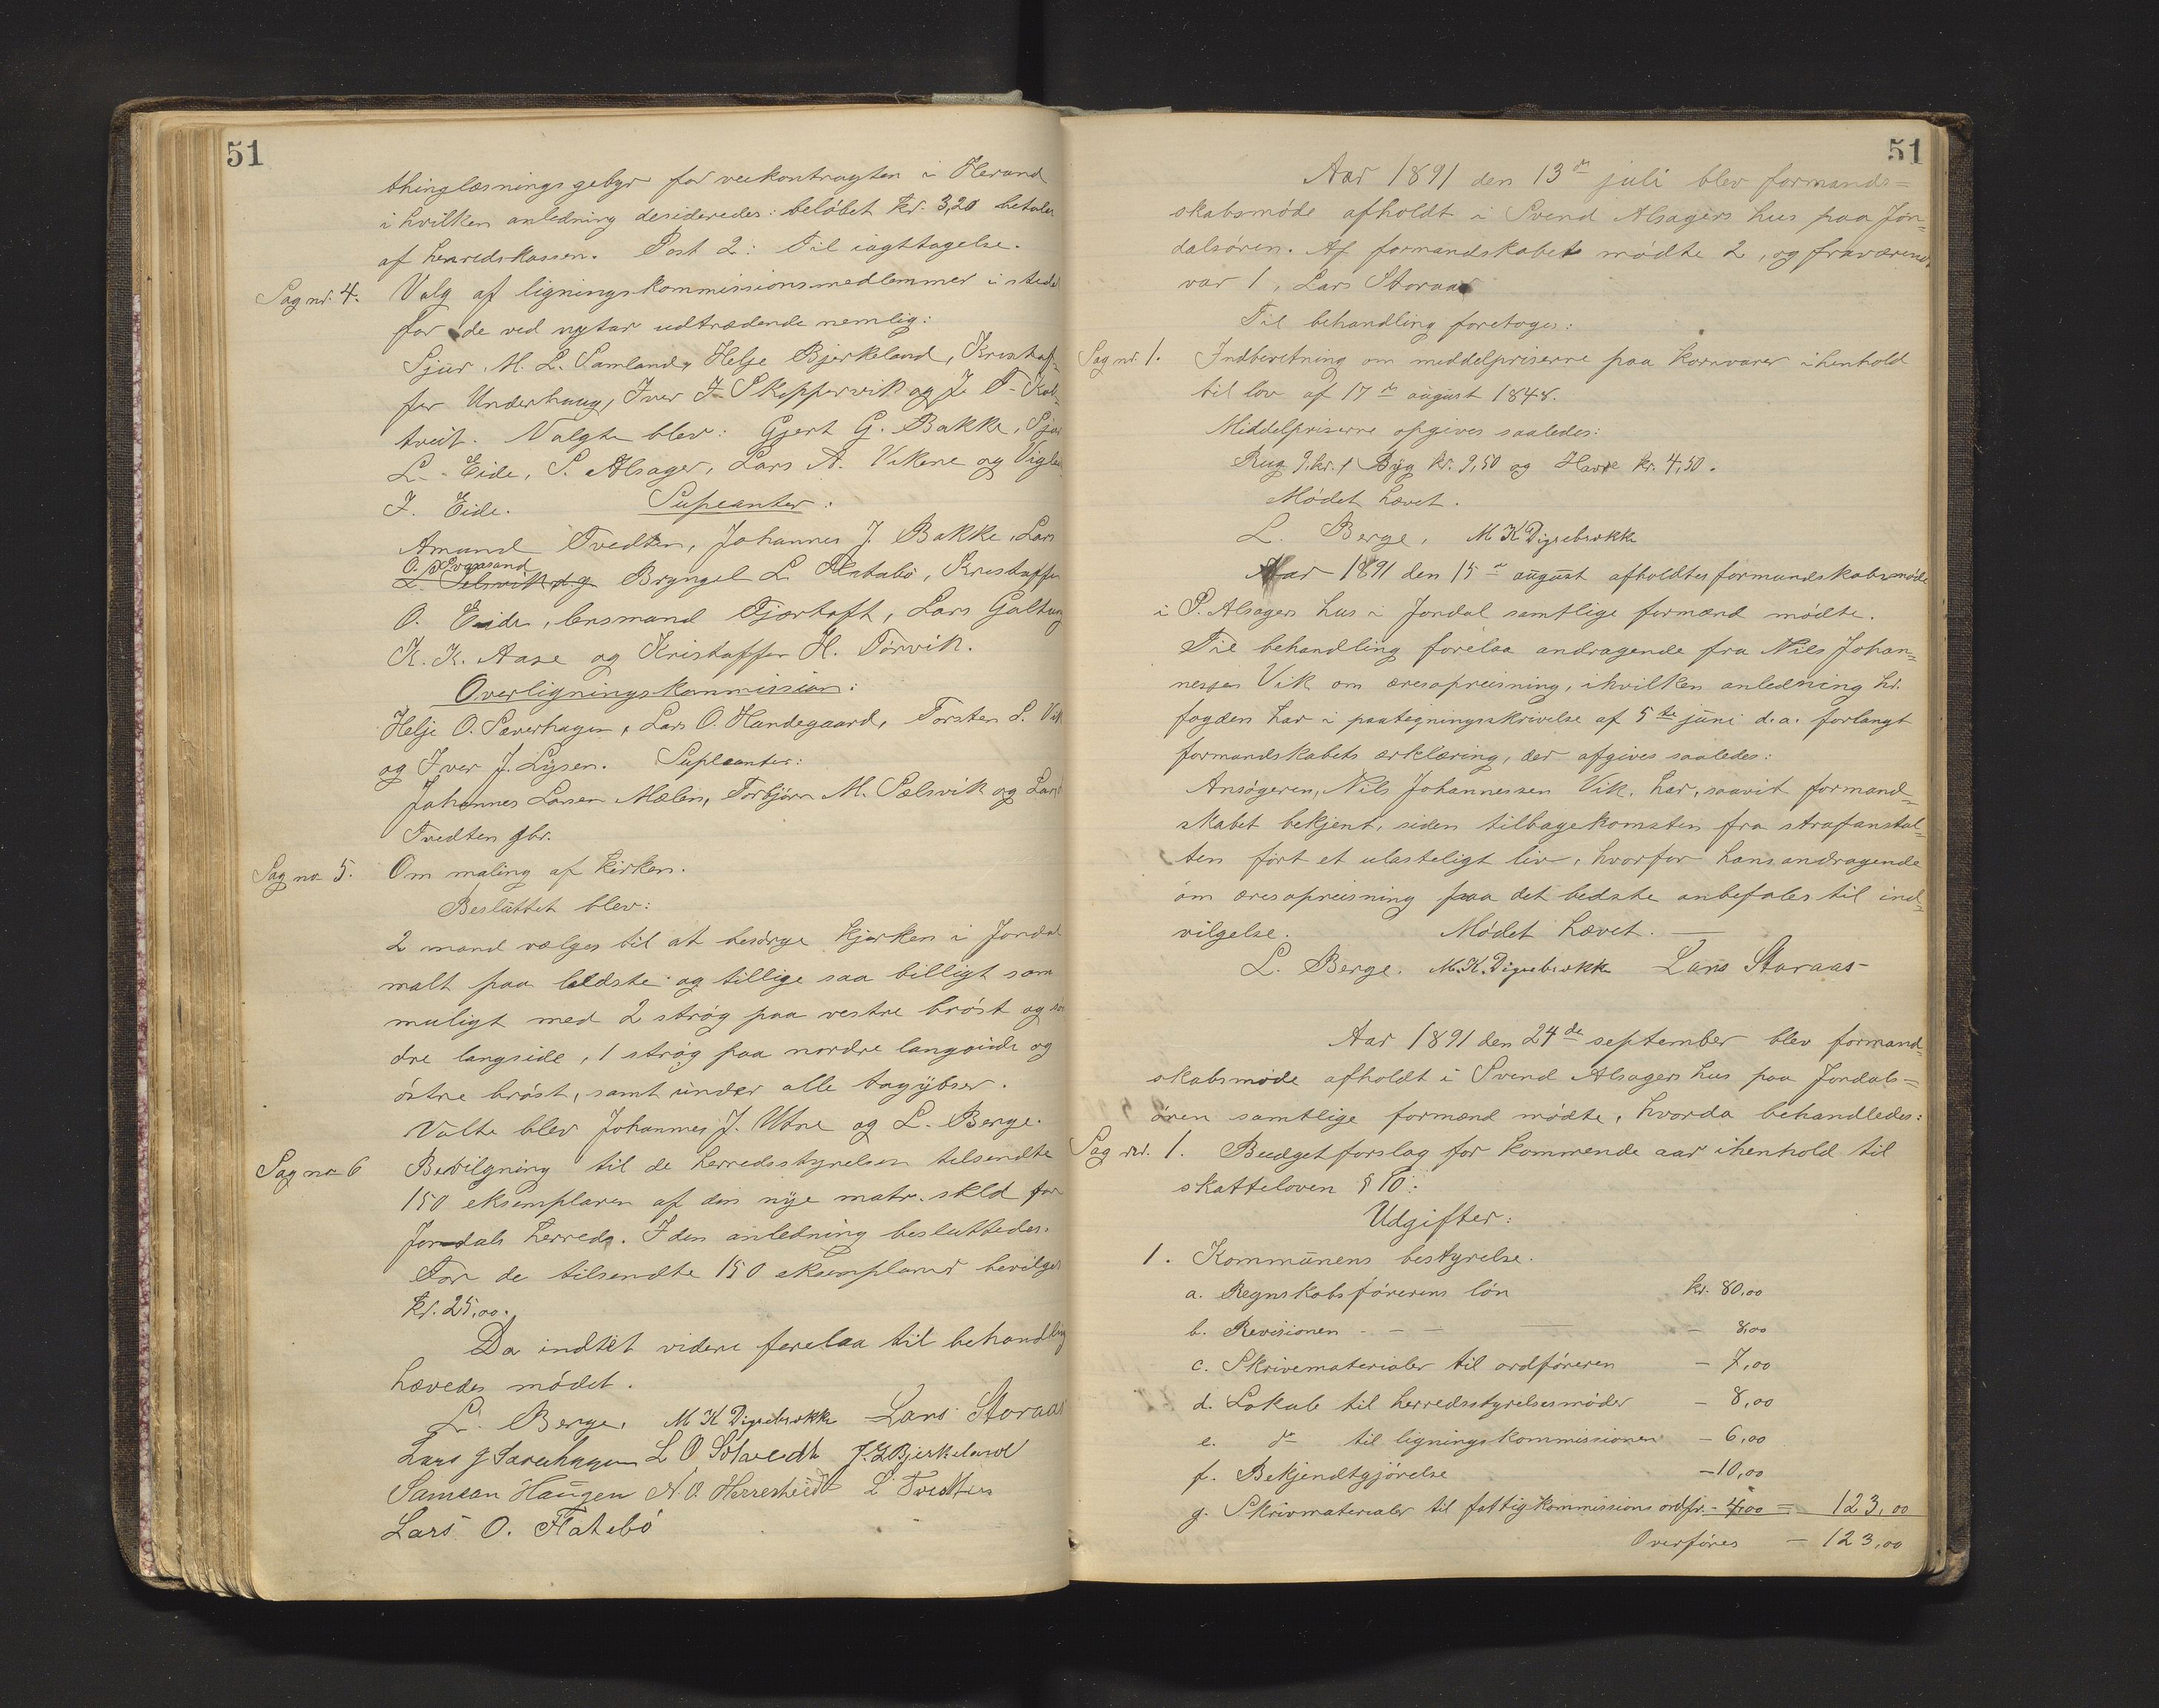 51
thinglæsningsgebyr for veikontragten i Herand
i hvilken anledning desideredes: beløbet kr. 3,20 betales
af herredskassen. Post 2: Til iagttagelse.
Sag nr. 4. Valg af ligningskommissionsmedlemmer i stedet
for de ved nytar udtrædende nemlig:
Sjur M. L. Samland, Helje Bjerkeland, Kristaf-
fer Underhaug, Iver I. Skippervik og J. T. Kol-
tveit. Valgte blev: Gjert G. Bakke, Sjur
L. Eide, S. Alsager, Lars A. Vikene og Vigleik
I. Eide. Supeanter:
Amund Tvedten, Johannes J. Bakke, Lars
O. Svaasand
L. Selsvik og Bryngel L. Flatabø, Kristaffer
O. Eide, lensmand Tjærtoft, Lars Galtung
K. K. Aase og Kristaffer H. Tørvik.
Overligningskommission:
Helje O. Sæverhagen, Lars O. Handegaard, Torsten S. Vik
og Iver J. Lysen. Supleanter:
Johannes Larsen Mælen, Torbjørn M. Sælsvik og Lars
Tvedten gbr.
Sag no 5. Om maling af kirken.
Besluttet blev:
2 mand vælges til at besørge kjerken i Jondal
malt paa beldste og tillige saa billigt som
muligt med 2 strøg paa vestre brøst og sø-
dre langside, 1 strøg paa nordre langside og
østre brøst, samt under alle tagybser.
Valte blev Johannes J. Utne og L. Berge.
Sag no 6 Bevilgning til de herredsstyrelsen tilsendte
150 eksemplaren af den nye matr. skld for
Jondals herred. I den anledning besluttedes.
For de tilsendte 150 eksemplarer bevilges
kr. 25,00.
Da indtet videre forelaa til behandling
hævedes mødet.
L. Berge. M K Digrebrække Lars Storaas
Lars J Særehagen L O Solavedt J. G Bjerkeland
Samson Haugen N. O. Herreheidt L Tvedten
Lars O. Flatebø
51
Aar 1891 den 13de juli blev formands=
skabsmøde afholdt i Svend Alsagers hus paa Jon=
dalsøren. Af formandskabet mødte 2, og fraværende
var 1, Lars Storaas
Til behandling foretoges:
Sag nr. 1. Indberetning om middelpriserne paa kornvarer ihenhold
til lov af 17de august 1848.
Middelpriserne opgives saaledes:
Rug 9 kr., Byg kr. 9,50 og Havre kr. 4,50.
Mødet hævet.
L. Berge, M K Digrebrække
Aar 1891 den 15de august afholdtes formandskabsmøde
i S. Alsagers hus i Jondal samtlige formænd mødte.
Til behandling forelaa andragende fra Nils Johan=
nessen Vik om æresopreisning, ihvilken anledning hr.
fogden har i paategningsskrivelse af 5te juni d. a. forlangt
formandskabets erklæring, der afgives saaledes:
Ansøgeren, Nils Johannessen Vik, har, saavit formand=
skabet bekjent, siden tilbagekomsten fra strafanstal=
ten ført et ulasteligt liv, hvorfor hans andragende
om æresopreisning paa det bedste anbefales til ind=
vilgelse. Mødet hævet.
L. Berge. M. K. Digrebrække Lars Storaas
Aar 1891 den 24de september blev formand=
skabsmøde afholdt i Svend Alsagers hus paa Jondals=
øren samtlige formænd mødte, hvorda behandledes:
Sag nr. 1. Budgetforslag for kommende aar ihenhold til
skatteloven § 10:
Udgifter:
1. Kommunens bestyrelse.
a. Regnskabsførerens løn kr. 80,00
b. Revisionen - - - — - 8,00
c. Skrivematerialer til ordføreren - 7,00
d. Lokale til herredsstyrelsesmøder - 8,00
e. do til ligningskommissionen - 6,00
f. Bekjendtgjørelse - 10,00
g. Skrivmaterialer til fattigkommissions ordfr. - 4,00 = 123,00
Overføres - 123,00